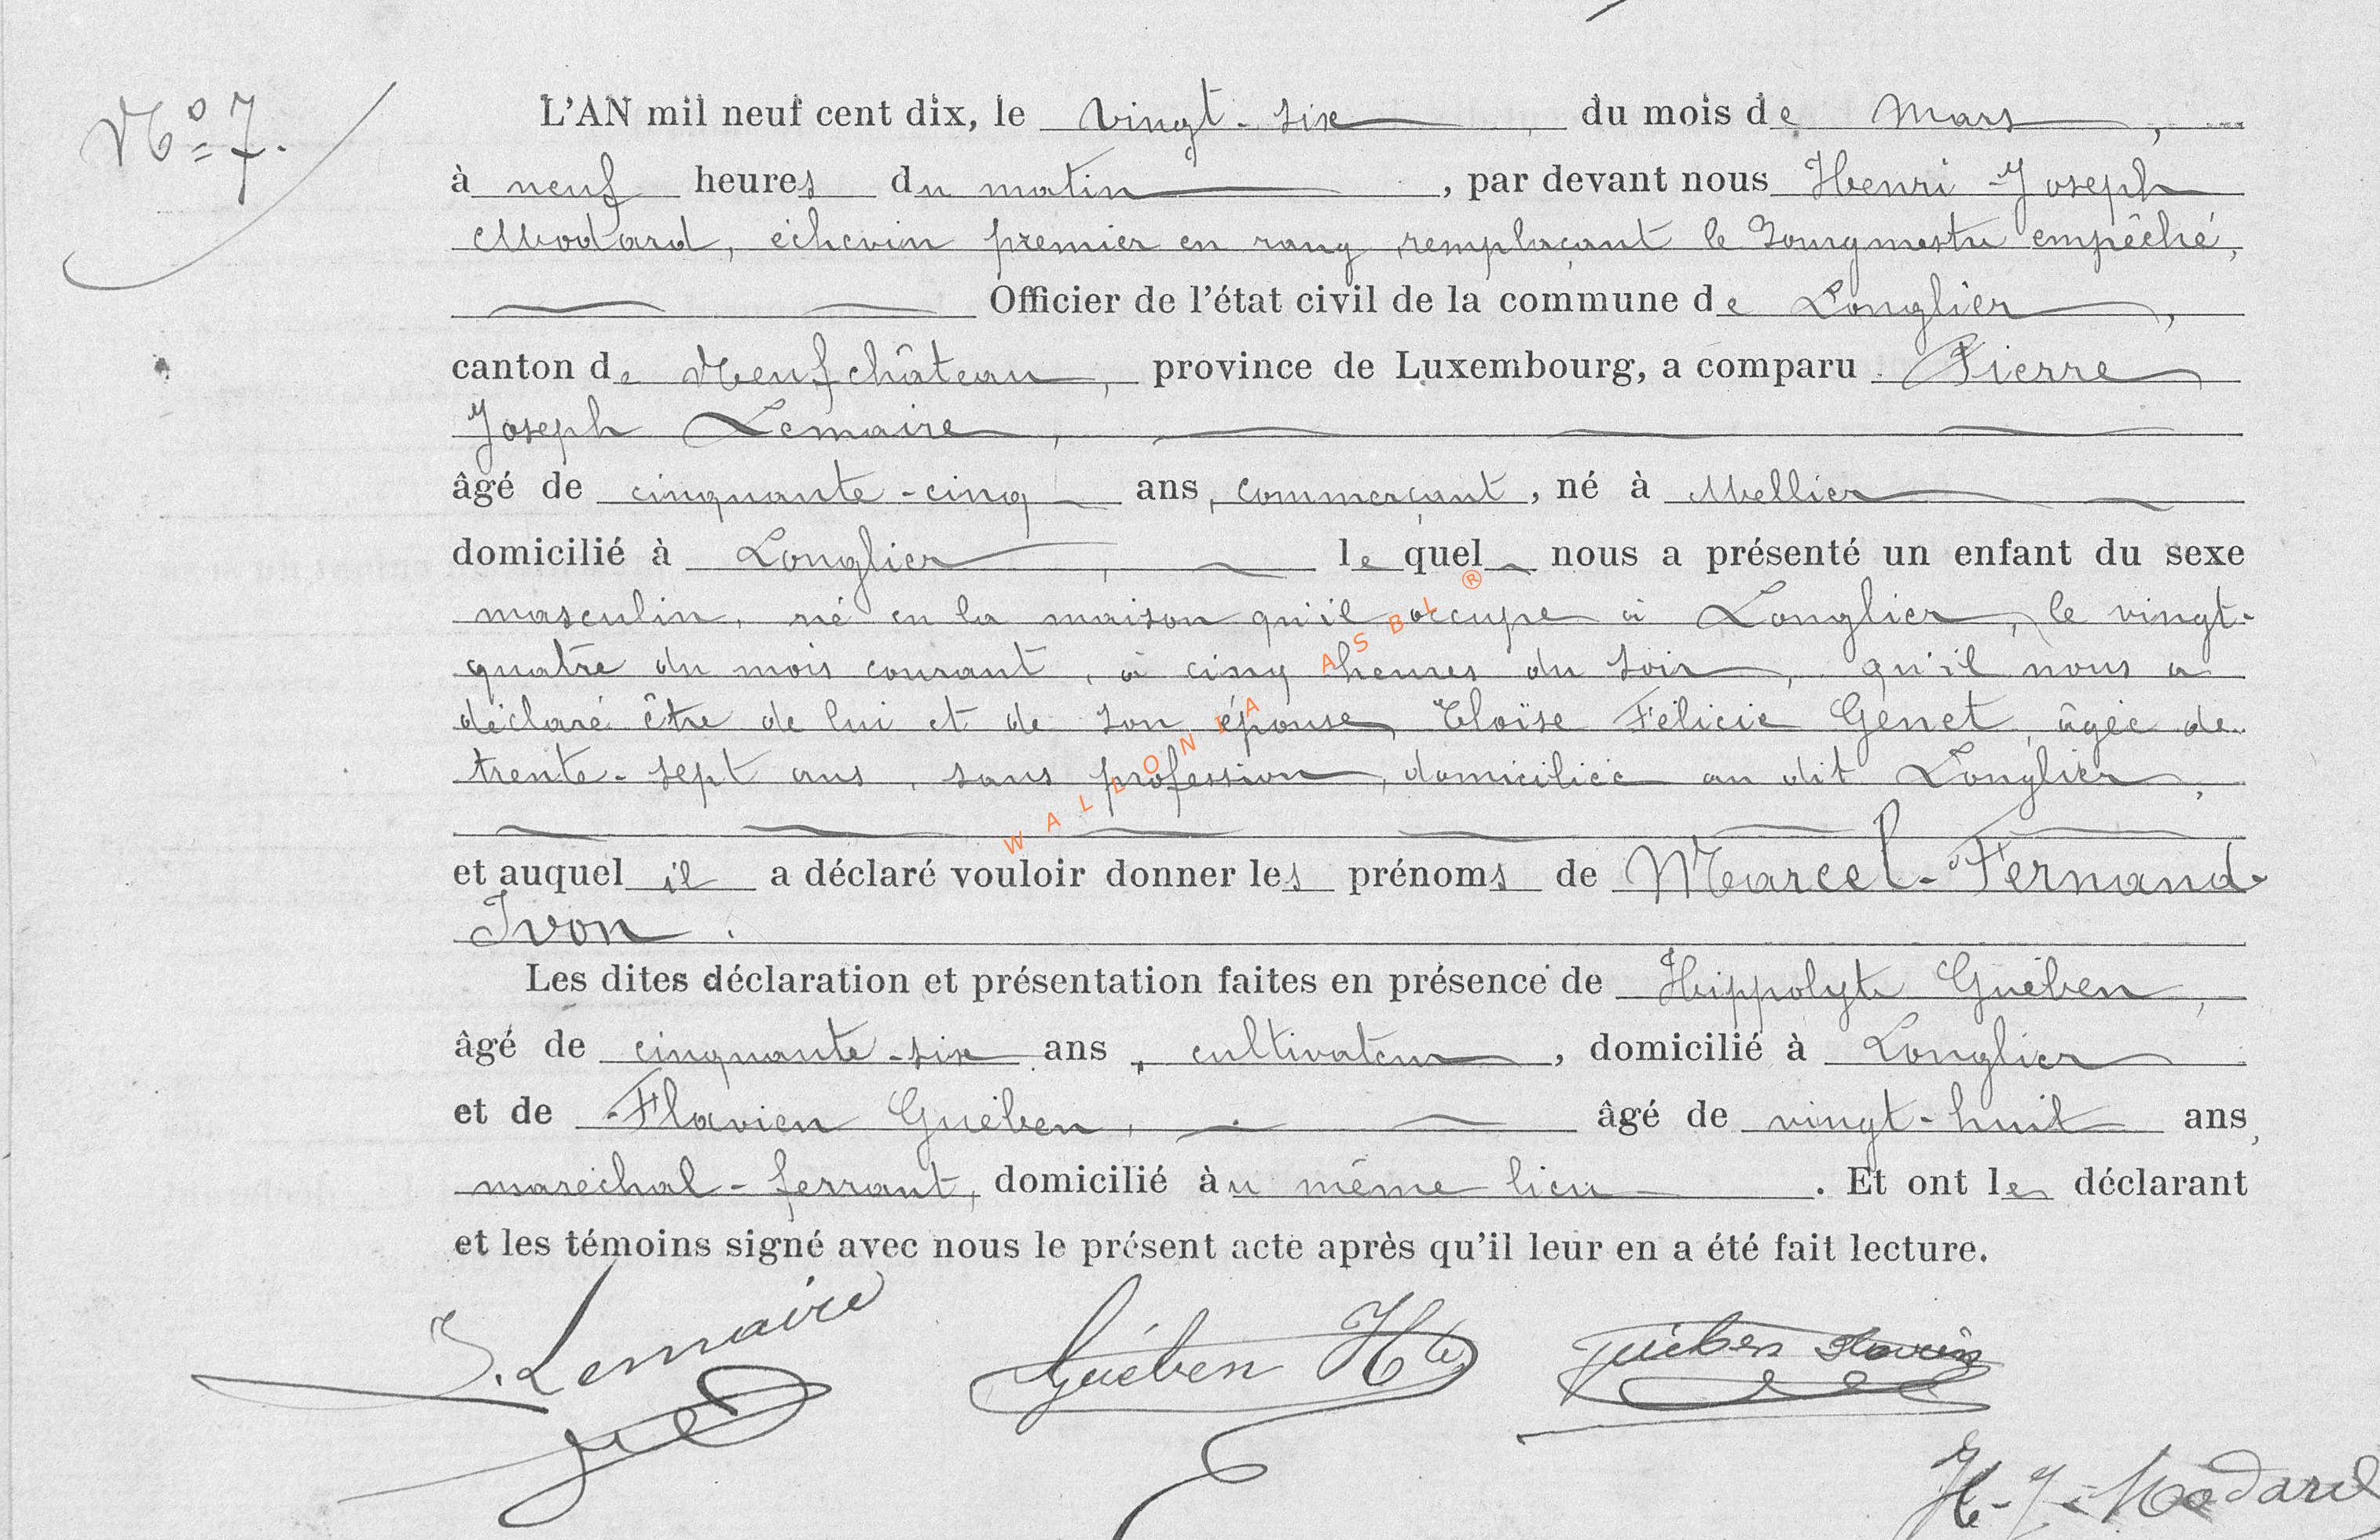 N° 7.
L'AN mil neuf cent dix, le vingt-six, du mois de Mars,
à neuf heures du matin, par devant nous Henri-Joseph
Modard, échevin premier en rang, remplaçant le Bourgmestre empêché,
Officier de l'état civil de la commune de Longlier,
canton de Neufchâteau, province de Luxembourg, a comparu Pierre
Joseph Lemaire,
âgé de cinquante-cinq ans, commerçant, né à Mellier
domicilié à Longlier, le quel nous a présenté un enfant du sexe
masculin, né en la maison qu'il occupe à Longlier, le vingt-
quatre du mois courant, à cinq heures du soir, qu'il nous a
déclaré être de lui et de son épouse, Eloïse Félicie Genet, âgée de
trente-sept ans, sans profession, domiciliée au dit Longlier,
et auquel il a déclaré vouloir donner les prénoms de Marcel-Fernand-
Ivon.
Les dites déclaration et présentation faites en présence de Hippolyte Guében,
âgé de cinquante-six ans, cultivateur, domicilié à Longlier
et de Flavien Guében, âgé de vingt-huit ans,
maréchal-ferrant, domicilié au même lieu. Et ont les déclarant
et les témoins signé avec nous le présent acte après qu'il leur en a été fait lecture.
J. Lemaire Guében Hte Guében Flavien
H-J-Modard
WALLONIA ASBL ®